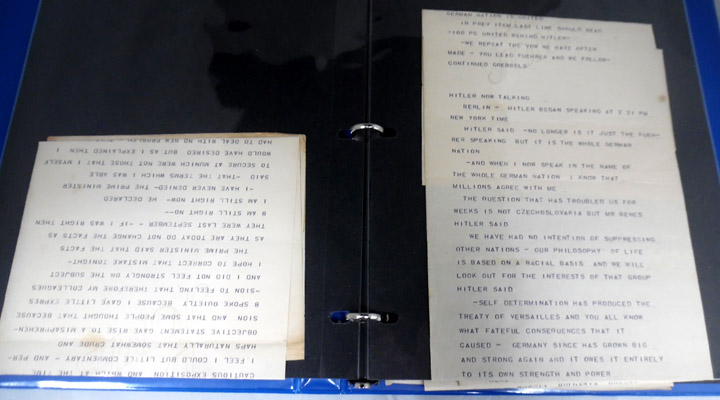 CAUTIOUS EXPOSITION AND WHICH AT THE TIME
I FEEL I COULD BUT LITTLE COMMENTARY - AND PER-
HAPS NATURALLY THAT SOMEWHAT CRUDE AND
OBJECTIVE STATEMENT GAVE RISE TO A MISAPPREHEN-
SION AND THAT SOME PEOPLE THOUGHT THAT BECAUSE
B SPOKE QUIETLY BECAUSE I GAVE LITTLE EXPRES
-SION TO THAT FEELING THEREFORE MY COLLEAGUES
AND I DID NOT FEEL STRONGLY ON THE SUBJECT
I HOPE TO CORRECT THAT MISTAKE -TONIGHT-
THE PRIME MINISTER SAID THAT THE FACTS
AS THEY ARE TODAY DO NOT CHANGE THE FACTS AS
THEY WERE LAST SEPTEMBER - IF - I WAS RIGHT THEN
B AM STILL RIGHT NOW--
I AM STILL RIGHT -NOW- HE DECLARED
-I HAVE NEVER -DENIED- THE PRIME MINISTER
SAID -THAT- THE TERMS WHICH I WAS ABLE
TO SECURE AT MUNICH WERE NOT THOSE THAT I MYSELF
WOULD HAVE DESIRED BUT AS I EXPLAINED THEN I
HAD TO DEAL WITH NO NEW PROBLEM -
GERMAN NATION IS UNITED
IN PREV ITEM LAST LINE SHOULD READ
-100 PC UNITED BEHIND HITLER-
-WE REPEAT THE VOW WE HAVE OFTEN
MADE - YOU LEAD FUEHRER AND WE FOLLOW-
CONTINUED GOEBBELS
HITLER NOW TALKING
BERLIN - HITLER BEGAN SPEAKING AT 2 21 PM
NEW YORK TIME
HITLER SAID -NO LONGER IS IT JUST THE FUEH-
RER SPEAKING BUT IT IS THE WHOLE GERMAN
NATION
-AND WHEN I NOW SPEAK IN THE NAME OF
THE WHOLE GERMAN NATION I KNOW THAT
MILLIONS AGREE WITH ME
THE QUESTION THAT HAS TROUBLED US FOR
WEEKS IS NOT CZECHOSLOVAKIA BUT MR BENES
HITLER SAID
WE HAVE HAD NO INTENTION OF SUPPRESSING
OTHER NATIONS - OUR PHILOSOPHY OF LIFE
IS BASED ON A RACIAL BASIS AND WE WILL
LOOK OUT FOR THE INTERESTS OF THAT GROUP
HITLER SAID
-SELF DETERMINATION HAS PRODUCED THE
TREATY OF VERSAILLES AND YOU ALL KNOW
WHAT FATEFUL CONSEQUENCES THAT IT
CAUSED - GERMANY SINCE HAS GROWN BIG
AND STRONG AGAIN AND IT OWES IT ENTIRELY
TO ITS OWN STRENGTH AND POWER